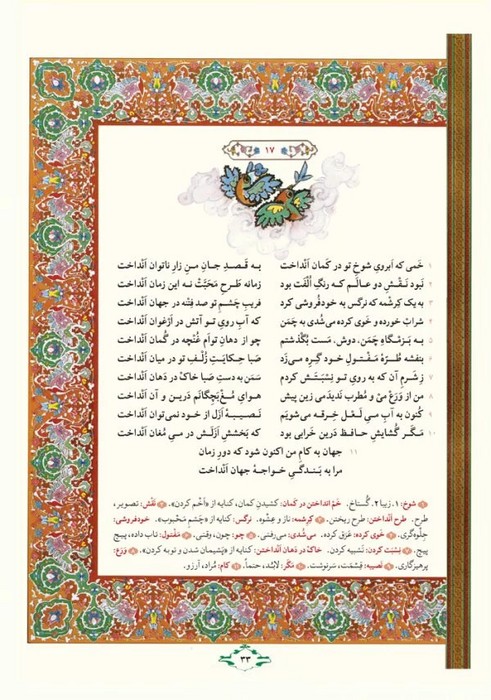 ۱۷
۱ خَمی که اَبرویِ شوخِ تو در کَمان اَنْداخت به قَصدِ جانِ منِ زارِ ناتوان اَنْداخت
۲ نَبود نَقْشِ دو عالَم که رنگِ اُلْفَت بود زمانه طَرحِ مَحَبَّتْ نه این زمان اَنْداخت
۳ به یک کِرِشمه که نرگس به خودفُروشی کرد فَریبِ چَشمِ تو صد فِتْنه در جهان اَنْداخت
۴ شَرابْ خورده و خَوی کرده می‌شُدی به چَمَن که آبِ رویِ تو آتش در اَرْغَوان اَنْداخت
۵ به بَزمگاهِ چَمَن، دوش، مَست بُگْذَشتم چو از دهانِ تواَم غُنچه در گُمان اَنْداخت
۶ بَنَفشه طُرّهٔ مَفْتولِ خود گِرِه می‌زَد صَبا حِکایَتِ زُلْفِ تو در میان اَنْداخت
۷ زِ شَرمِ آن که به رویِ تو نِسْبَتَش کردم سَمَن به دستِ صَبا خاکْ در دَهان اَنْداخت
۸ من از وَرَعْ مَیْ و مُطرب نَدیدَمی زین پیش هوایِ مُغْ‌بَچِگانَم دَرین و آن اَنْداخت
۹ کُنون به آبِ میِ لَعْل خِرقه می‌شویَم نَصیبهٔ اَزَل از خود نمی‌توان اَنْداخت
۱۰ مَگَر گُشایشِ حافظ دَرین خَرابی بود که بَخشِشِ اَزَلَش در میِ مُغان اَنْداخت
۱۱ جهان به کامِ من اکنون شود که دورِ زمان
مرا به بَنْدگیِ خواجهٔ جهان اَنْداخت
۱ شوخ: ۱. زیبا ۲. گُستاخ. خَمْ انداختن در کمان: کشیدنِ کمان، کنایه از «اَخْم کردن». ۲ نَقْش: تصویر،
طرح. طرح اَنْداختن: طرح ریختن. ۳ کِرِشمه: ناز و عِشْوه. نرگس: کنایه از «چَشمِ مَحْبوب». خودفروشی:
جِلْوه‌گری. ۴ خَوی کرده: عَرَق کرده. می‌شُدی: می‌رفتی. ۵ چو: چون، وقتی. ۶ مَفْتول: تاب داده، پیچ
پیچ. ۷ نِسْبَت کردن: تَشبیه کردن. خاک در دَهان اَنْداختن: کنایه از «پَشیمان شدن و توبه کردن». ۸ وَرَع:
پرهیزگاری. ۹ نَصیبه: قِسْمَت، سَرنوشت. ۱۰ مَگَر: لابُد، حتماً. ۱۱ کام: مُراد، آرزو.
۳۳